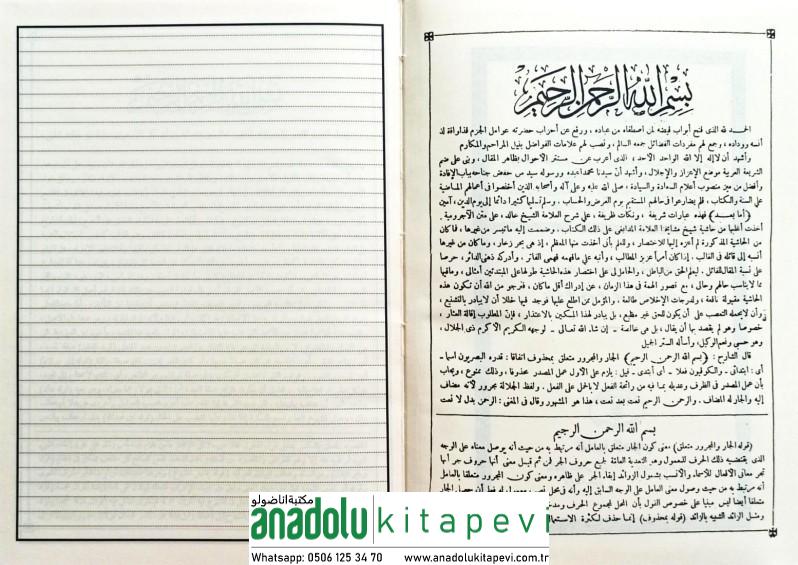 بسم الله الرحمن الرحيم
الحمد لله الذى فتح أبواب فيضه لمن اصطفاه من عباده ، ورفع عن أحزاب حضرته عوامل الجزم فذاوقة لذ
أنسه ووداده ، وجمع لهم مفردات الفضائل جمعه السالم ، ونصب لهم علامات الفواضل بنيل المراحم والمكارم
وأشهد أن لا إله إلا الله الواحد الأحد ، الذى أعرب عن مستتر الأحوال بظاهر المقال ، وبنى على ضم
الشريعة العربية موضع الإعزاز والإجلال ، وأشهد أن سيدنا محمدا عبده ورسوله سيد من خفض جناحه بباب الإفادة
وأفضل من ميز منصوب أعلام السعادة والسيادة ، صلى الله عليه وعلى آله وأصحابه الذين أخفضوا فى أعمالهم الماضية
على السنة والكتاب ، فلم يضارعوا فى حالهم المستقيم يوم العرض والحساب . وسلم تسليما كثيرا دائما إلى يوم الدين ، آمين
( أما بعد ) فهذه عبارات شريفة ، ونكات ظريفة ، على شرح العلامة الشيخ خالد ، على متن الآجرومية .
أخذت أغلبها من حاشية شيخ مشايخنا العلامة المدابغى على ذلك الكتاب . وضممت إليه ماتيسر من غيرها ، فما كان
من الحاشية المذكورة لم أعزه إليها للاختصار ، وللعلم بأنى أخذت منها المعظم ، إذ هى بحر زخار ، وما كان من غيرها
أنسبه إلى قائله فى الغالب . إذا كان أمرا عزيز المطالب ، وأنبه على مافهمه فهمى الفاتر . وأدركه ذهنى الداثر ، حرصا
على نسبة المقال لقائل . ليعلم الحق من الباطل ، والحامل لى على اختصار هذه الحاشية طولها على المبتدئين أمثالى ، وما فيها
مما لا يناسب حالهم وحالى ، مع قصور الهمة فى هذا الزمان ، عن إدراك أقل ما كان ، فنرجو من الله أن تكون هذه
الحاشية مقبولة نافعة ، ولدرجات الإخلاص طالعة . والمؤمل ممن اطلع عليها فوجد فيها خللا أن لا يبادر بالتشنيع ،
وأن لا يحمله التعصب على أن يكون للحق غير مطيع ، بل يبادر لهذا المسكين بالاعتذار ، فإن المطلوب إقالة العثار ،
خصوصا وهو لم يقصد بها أن يقال ، بل هى خالصة - إن شاء الله تعالى - لوجهه الكريم الأكرم ذى الجلال ،
وهو حسبى ونعم الوكيل ، وأسأله الستر الجميل
قال الشارح : ( بسم الله الرحمن الرحيم ) الجار والمجرور متعلق بمحذوف اتفاقا : قدره البصريون اسما -
أى : ابتدائى - والكوفيون فعلا - أى أبتدئ - قيل : يلزم على الأول عمل المصدر محذوفا ، وذلك ممنوع ، ويجاب
بأن عمل المصدر فى الظرف وعديله بما فيه من رائحة الفعل لا بالحمل على الفعل . ولفظ الجلالة مجرور لأنه مضاف
إليه والجار له المضاف . والرحمن الرحيم نعت بعد نعت ، هذا هو المشهور وقال فى المغنى : الرحمن بدل لا نعت
بسم الله الرحمن الرحيم
( قوله الجار والمجرور متعلق ) معنى كون الجار متعلق بالعامل أنه مرتبط به من حيث أنه يوصل معناه على الوجه
الذى يقتضيه ذلك الحرف للمعمول وهو التعدية العامة لجميع حروف الجر فمن ثم قيل معنى أنها حروف جر أنها
تجر معانى الأفعال للأسماء والأنسب بشمول الزوائد إبقاء الجر على ظاهره ومعنى كون المجرور متعلقا بالعامل
أنه مرتبط به من حيث وصول معنى العامل على الوجه السابق إليه وأنه فى محل نصب معمول له
متعلقا أيضا ليس مبنيا على خصوص القول بأن المحل لمجموع الحرف
ومثل الزائد الشبيه بالزائد ( قوله بمحذوف ) إنما حذف لكثرة
مكتبة اناضولو
anadolu kitapevi
Whatsapp: 0506 125 34 70 www.anadolukitapevi.com.tr